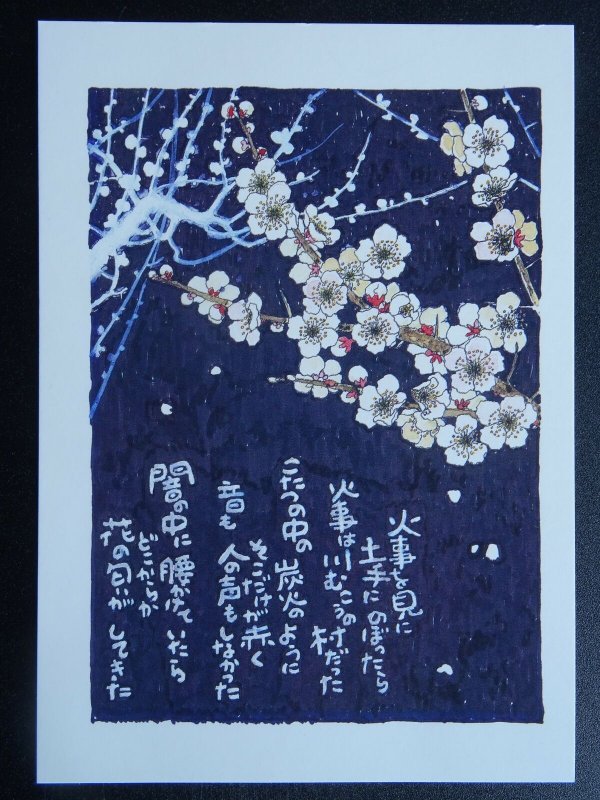 火事を見に
土手にのぼったら
火事は川むこうの村だった
こたつの中の炭火のように
そこだけが赤く
音も人の声もしなかった
闇の中に腰かけていたら
どこからか
花の匂いがしてきた